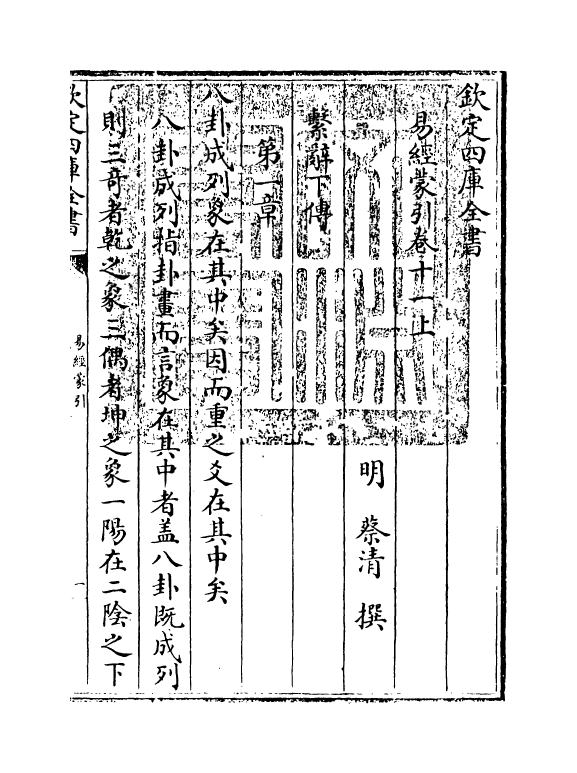 欽定四庫全書
易經蒙引卷十一上
明 蔡清 撰
繫辭下傳
第一章
八卦成列象在其中矣因而重之爻在其中矣
八卦成列指卦畫而言象在其中者盖八卦既成列
則三奇者乾之象三偶者坤之象一陽在二陰之下
欽定四庫全書
易經蒙引
一